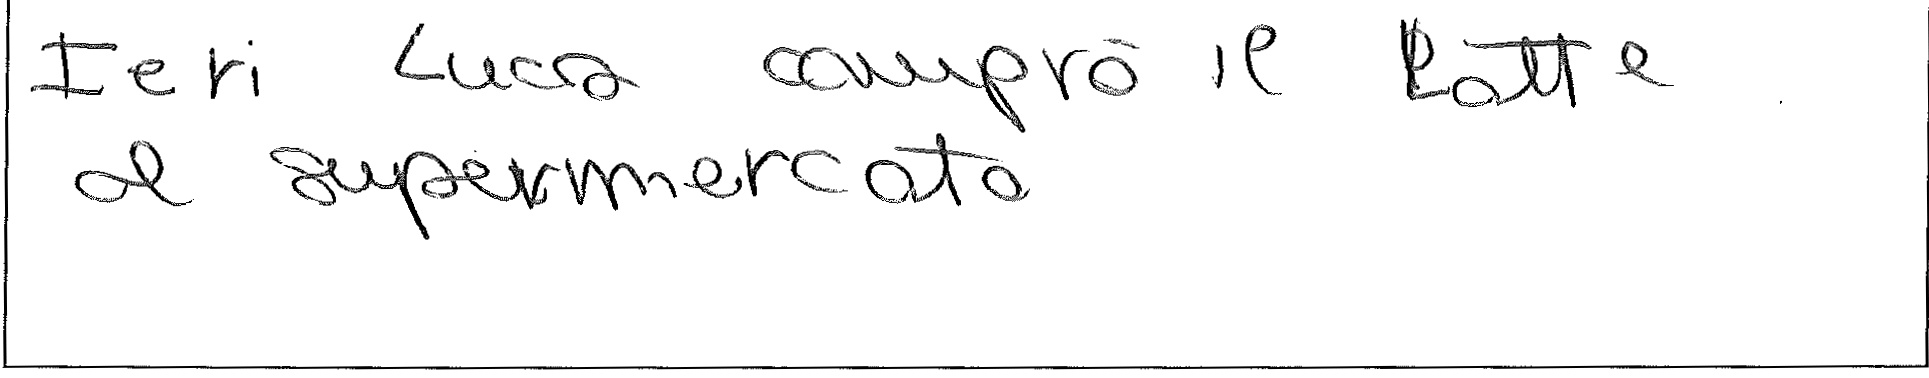 Ieri Luca comprò il latte
al supermercato